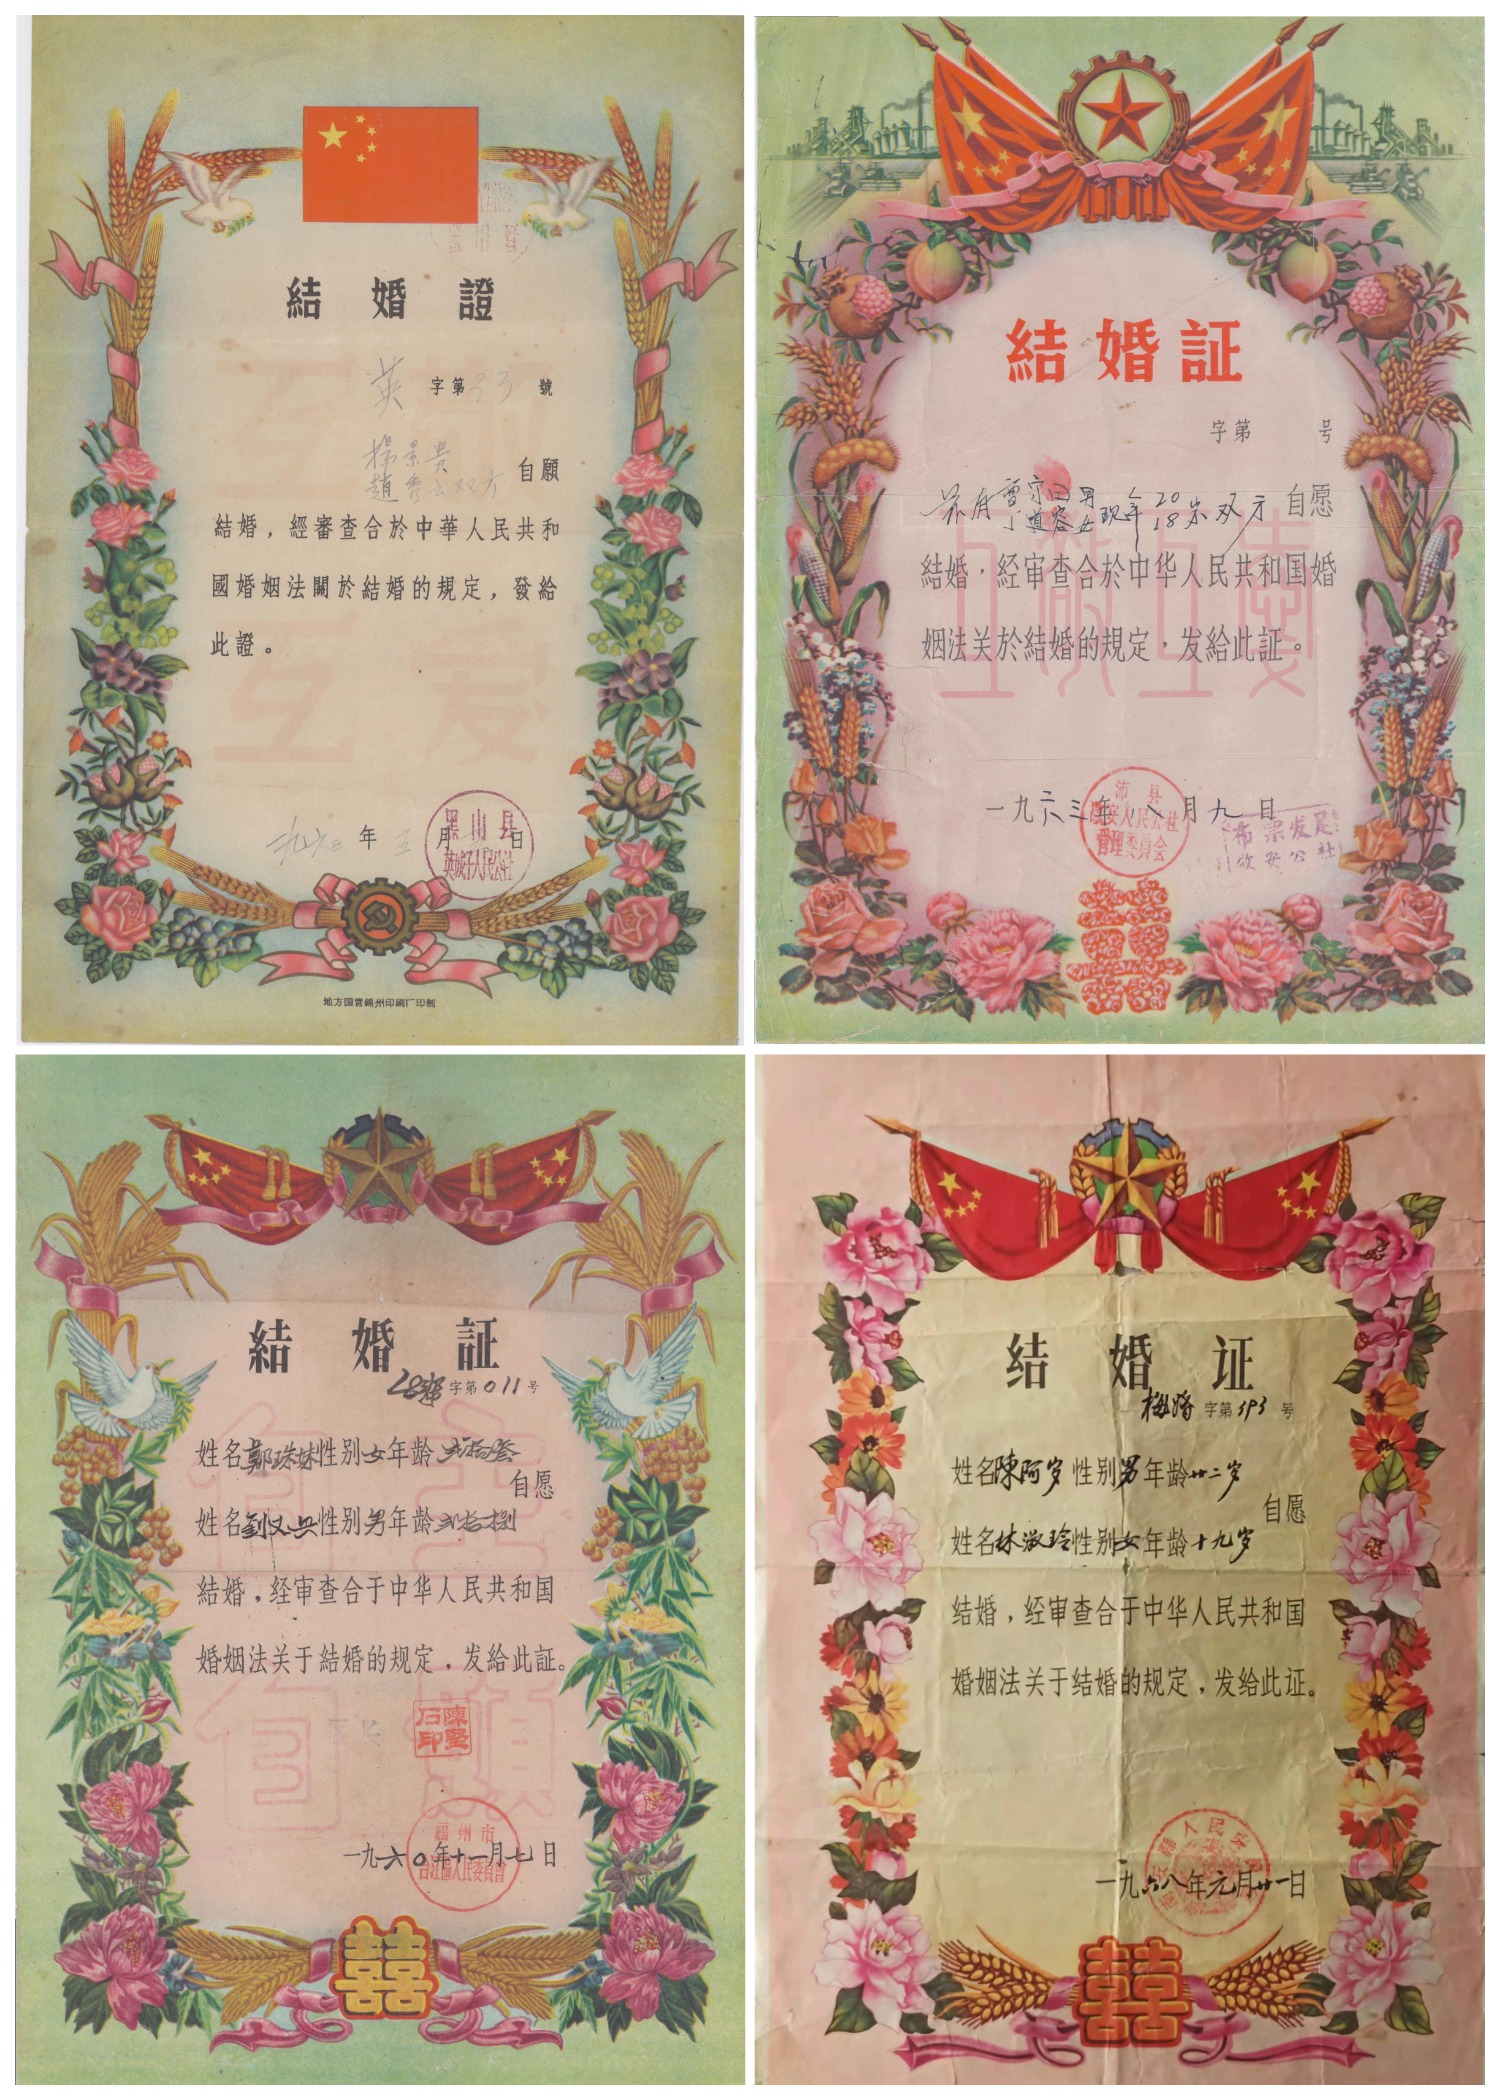 結婚證
英 字第33號
楊景贵
趙秀云双方 自願
結婚，經審查合於中華人民共和
國婚姻法關於結婚的規定，發給
此證。
互敬
互爱
一九六 年五月 日
黑山县
英城子人民公社
地方国营錦州印刷厂印制
結婚証
字第 号
兹有 曹宗 男 现年 20 岁 双方 自愿
道容 女 18
結婚，经审查合於中华人民共和国婚
姻法关於結婚的規定，发給此証。
互敬互爱
一九六三年八月九日
沛县
人民公社
管理委員会
布票发足
敬安公社
結婚証
字第011号
姓名鄭珠妹性别女年龄弍拾叁
自愿
姓名劉又 性别男年龄弍拾捌
結婚，经审查合于中华人民共和国
婚姻法关于結婚的规定，发給此証。
自主
自願
陳堅石印
一九六〇年十一月七日
福州市
台江區人民委員會
结婚证
梅婚 字第393号
姓名陳阿岁 性别男年龄廿二岁
自愿
姓名林淑玲性别女年龄十九岁
结婚，经审查合于中华人民共和国
婚姻法关于结婚的规定，发给此证。
一九六八年元月廿一日